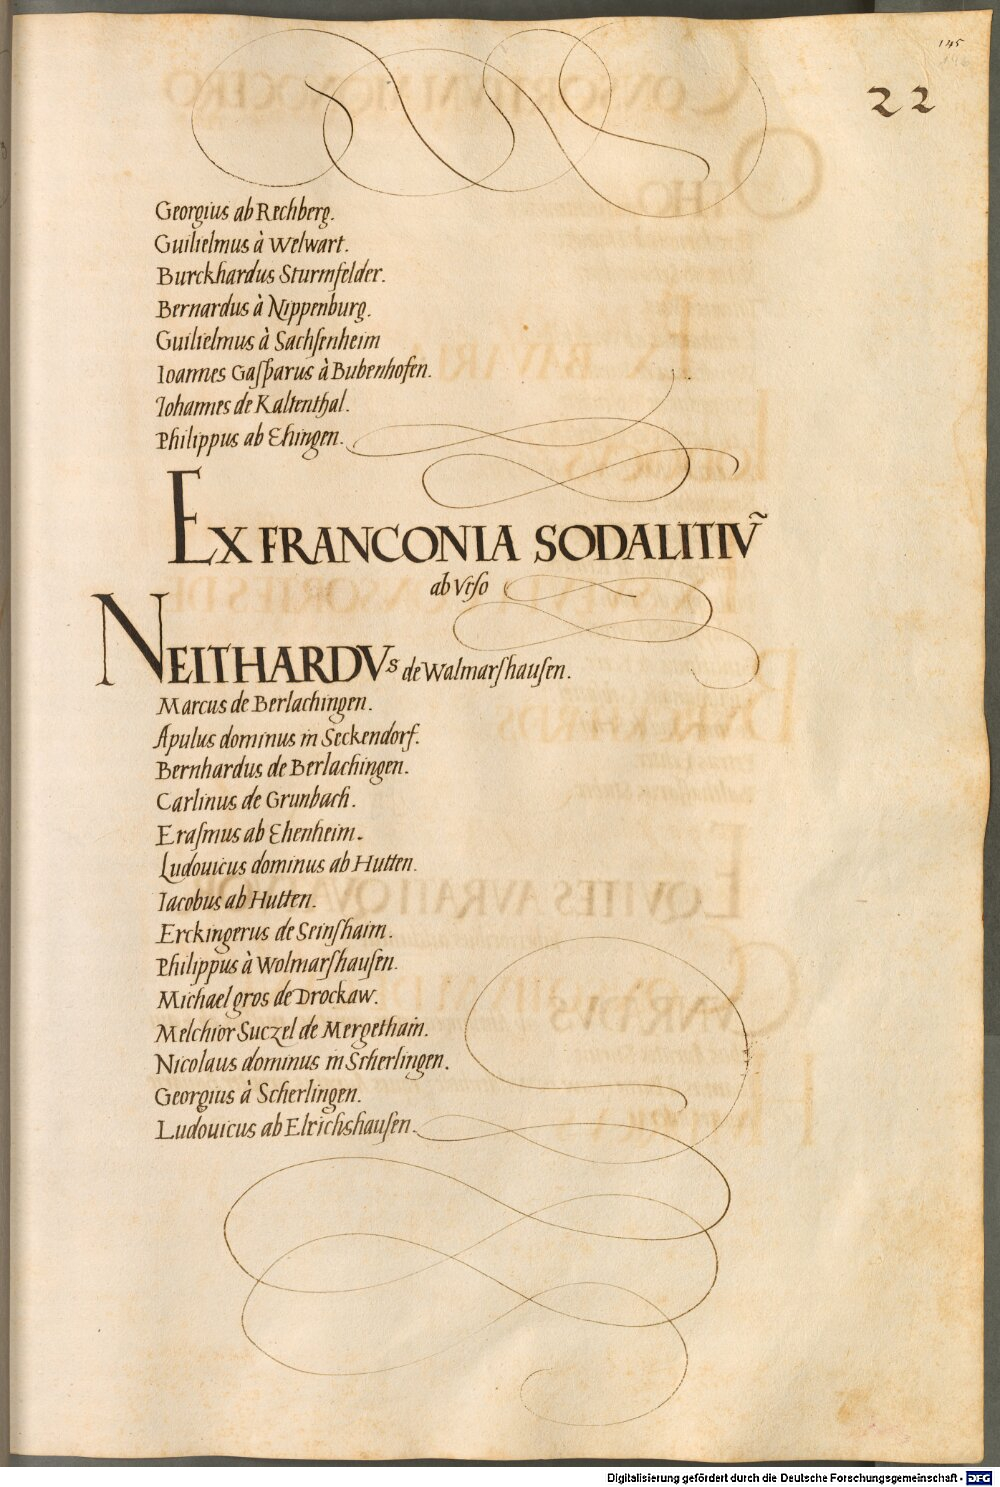 145
22
Georgius ab Rechberg.
Guilielmus à Welwart.
Burckhardus Sturmfelder.
Bernardus à Nippenburg.
Guilielmus à Sachsenheim
Ioannes Gasparus à Bubenhofen.
Iohannes de Kaltenthal.
Philippus ab Ehingen.
EX FRANCONIA SODALITIV̄
ab Vrso
NEITHARDVs de Walmarshausen.
Marcus de Berlachingen.
Apulus dominus in Seckendorf.
Bernhardus de Berlachingen.
Carlinus de Grunbach.
Erasmus ab Ehenheim.
Ludouicus dominus ab Hutten.
Iacobus ab Hutten.
Erckingerus de Seinshaim.
Philippus à Wolmarshausen.
Michael gros de Drockaw.
Melchior Suczel de Mergethain.
Nicolaus dominus in Scherlingen.
Georgius à Scherlingen.
Ludouicus ab Elrichshausen.
Digitalisierung gefördert durch die Deutsche Forschungsgemeinschaft - DFG